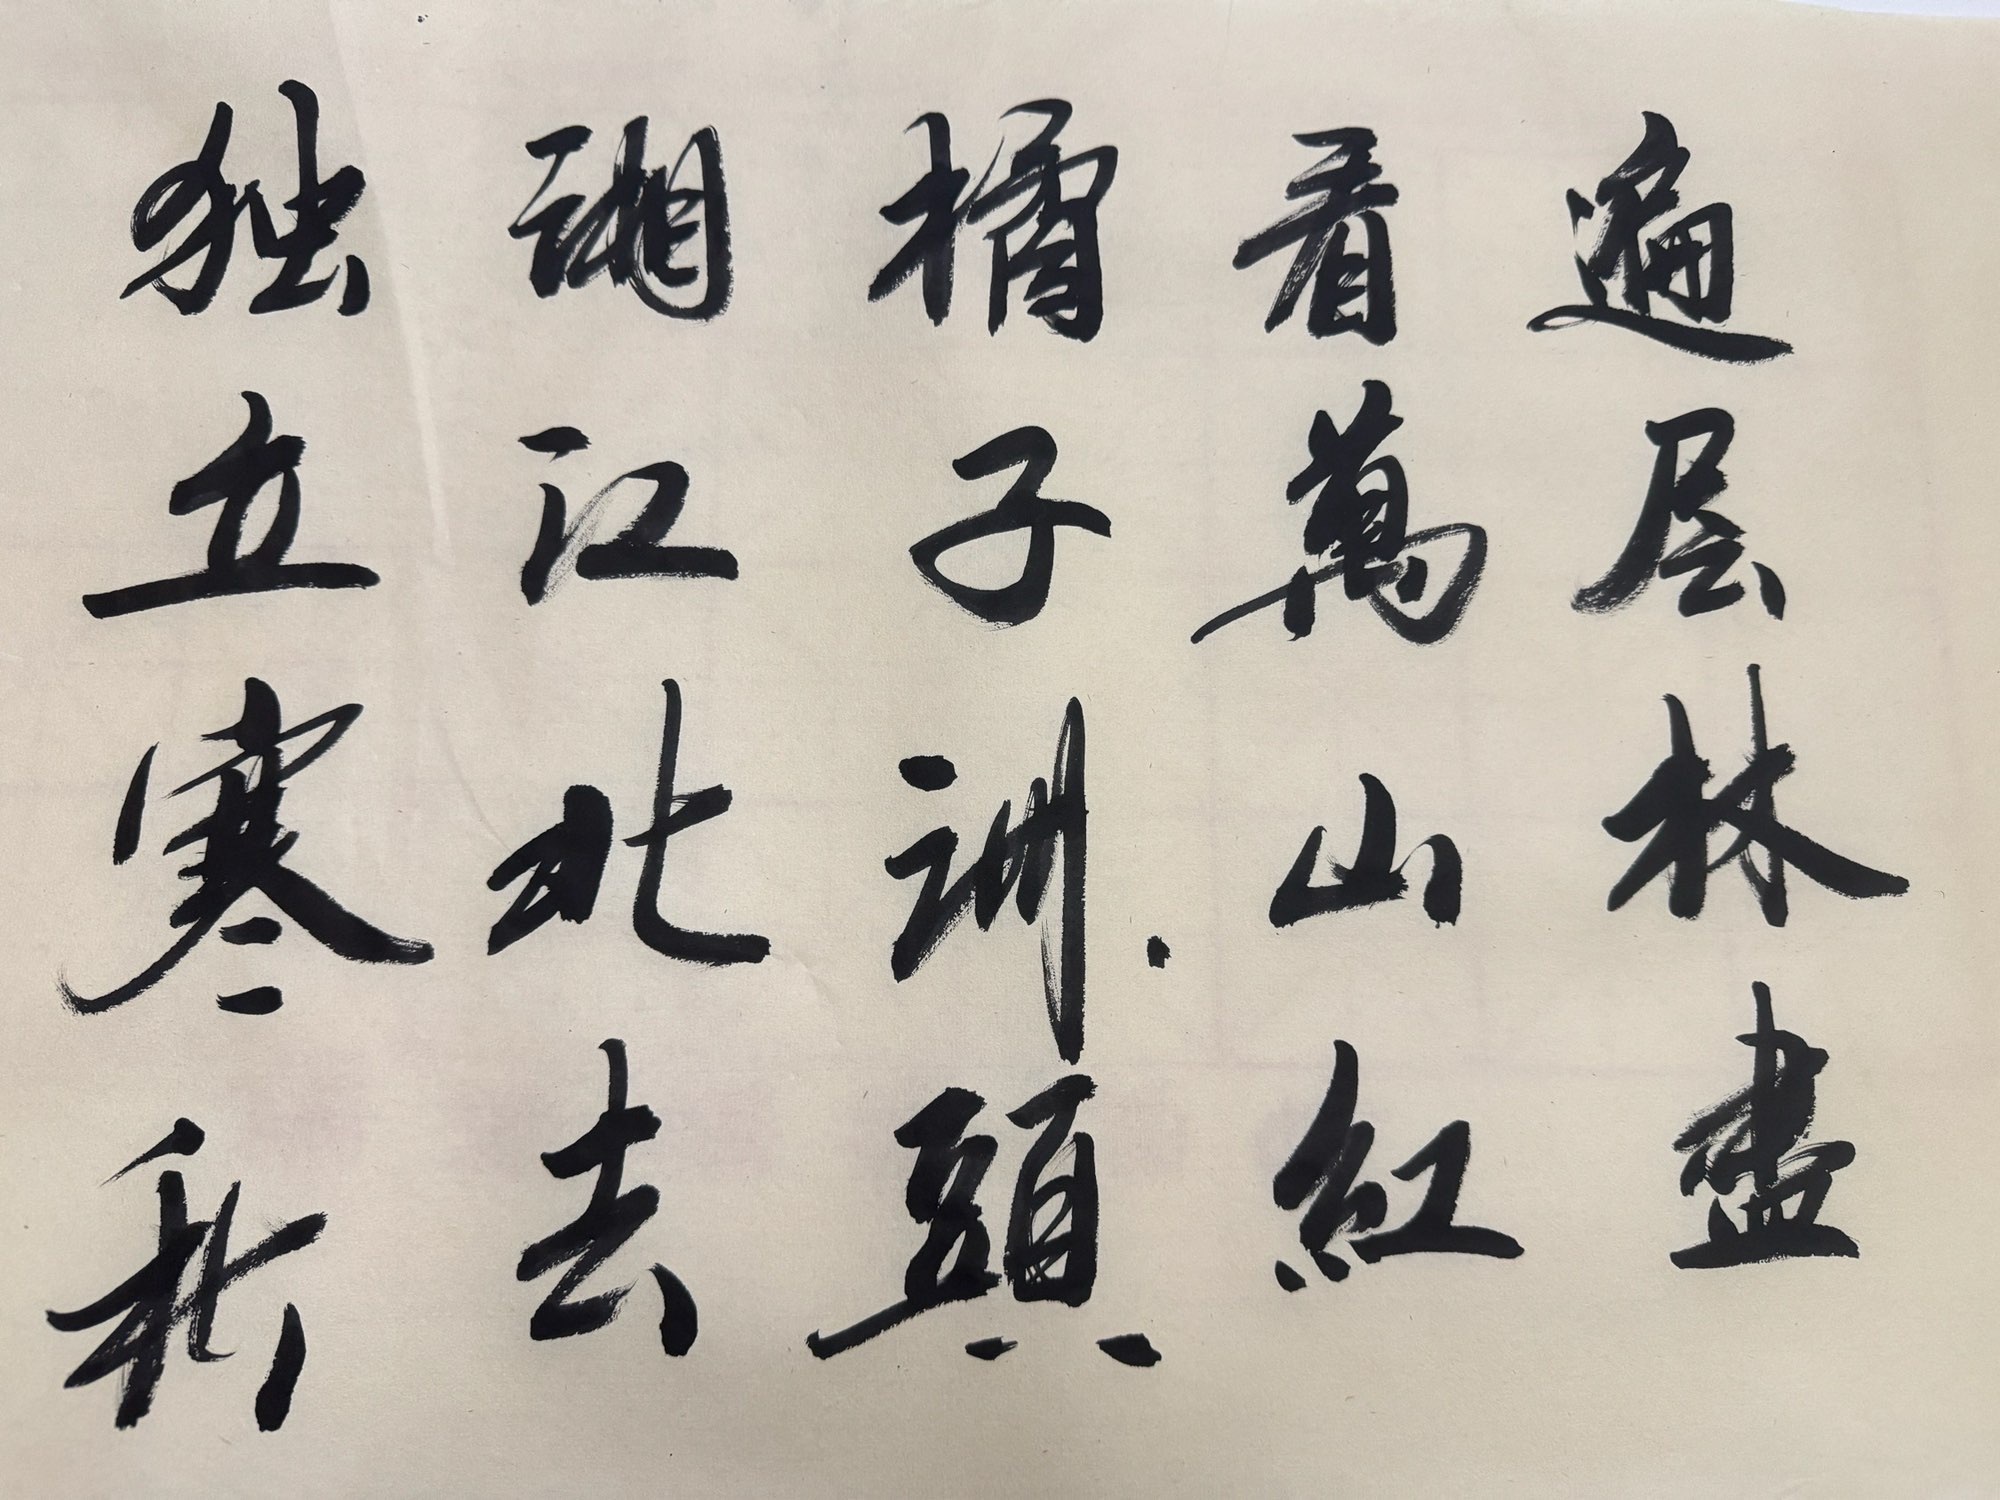 独立寒秋
湘江北去
橘子洲頭
看萬山紅
遍层林尽